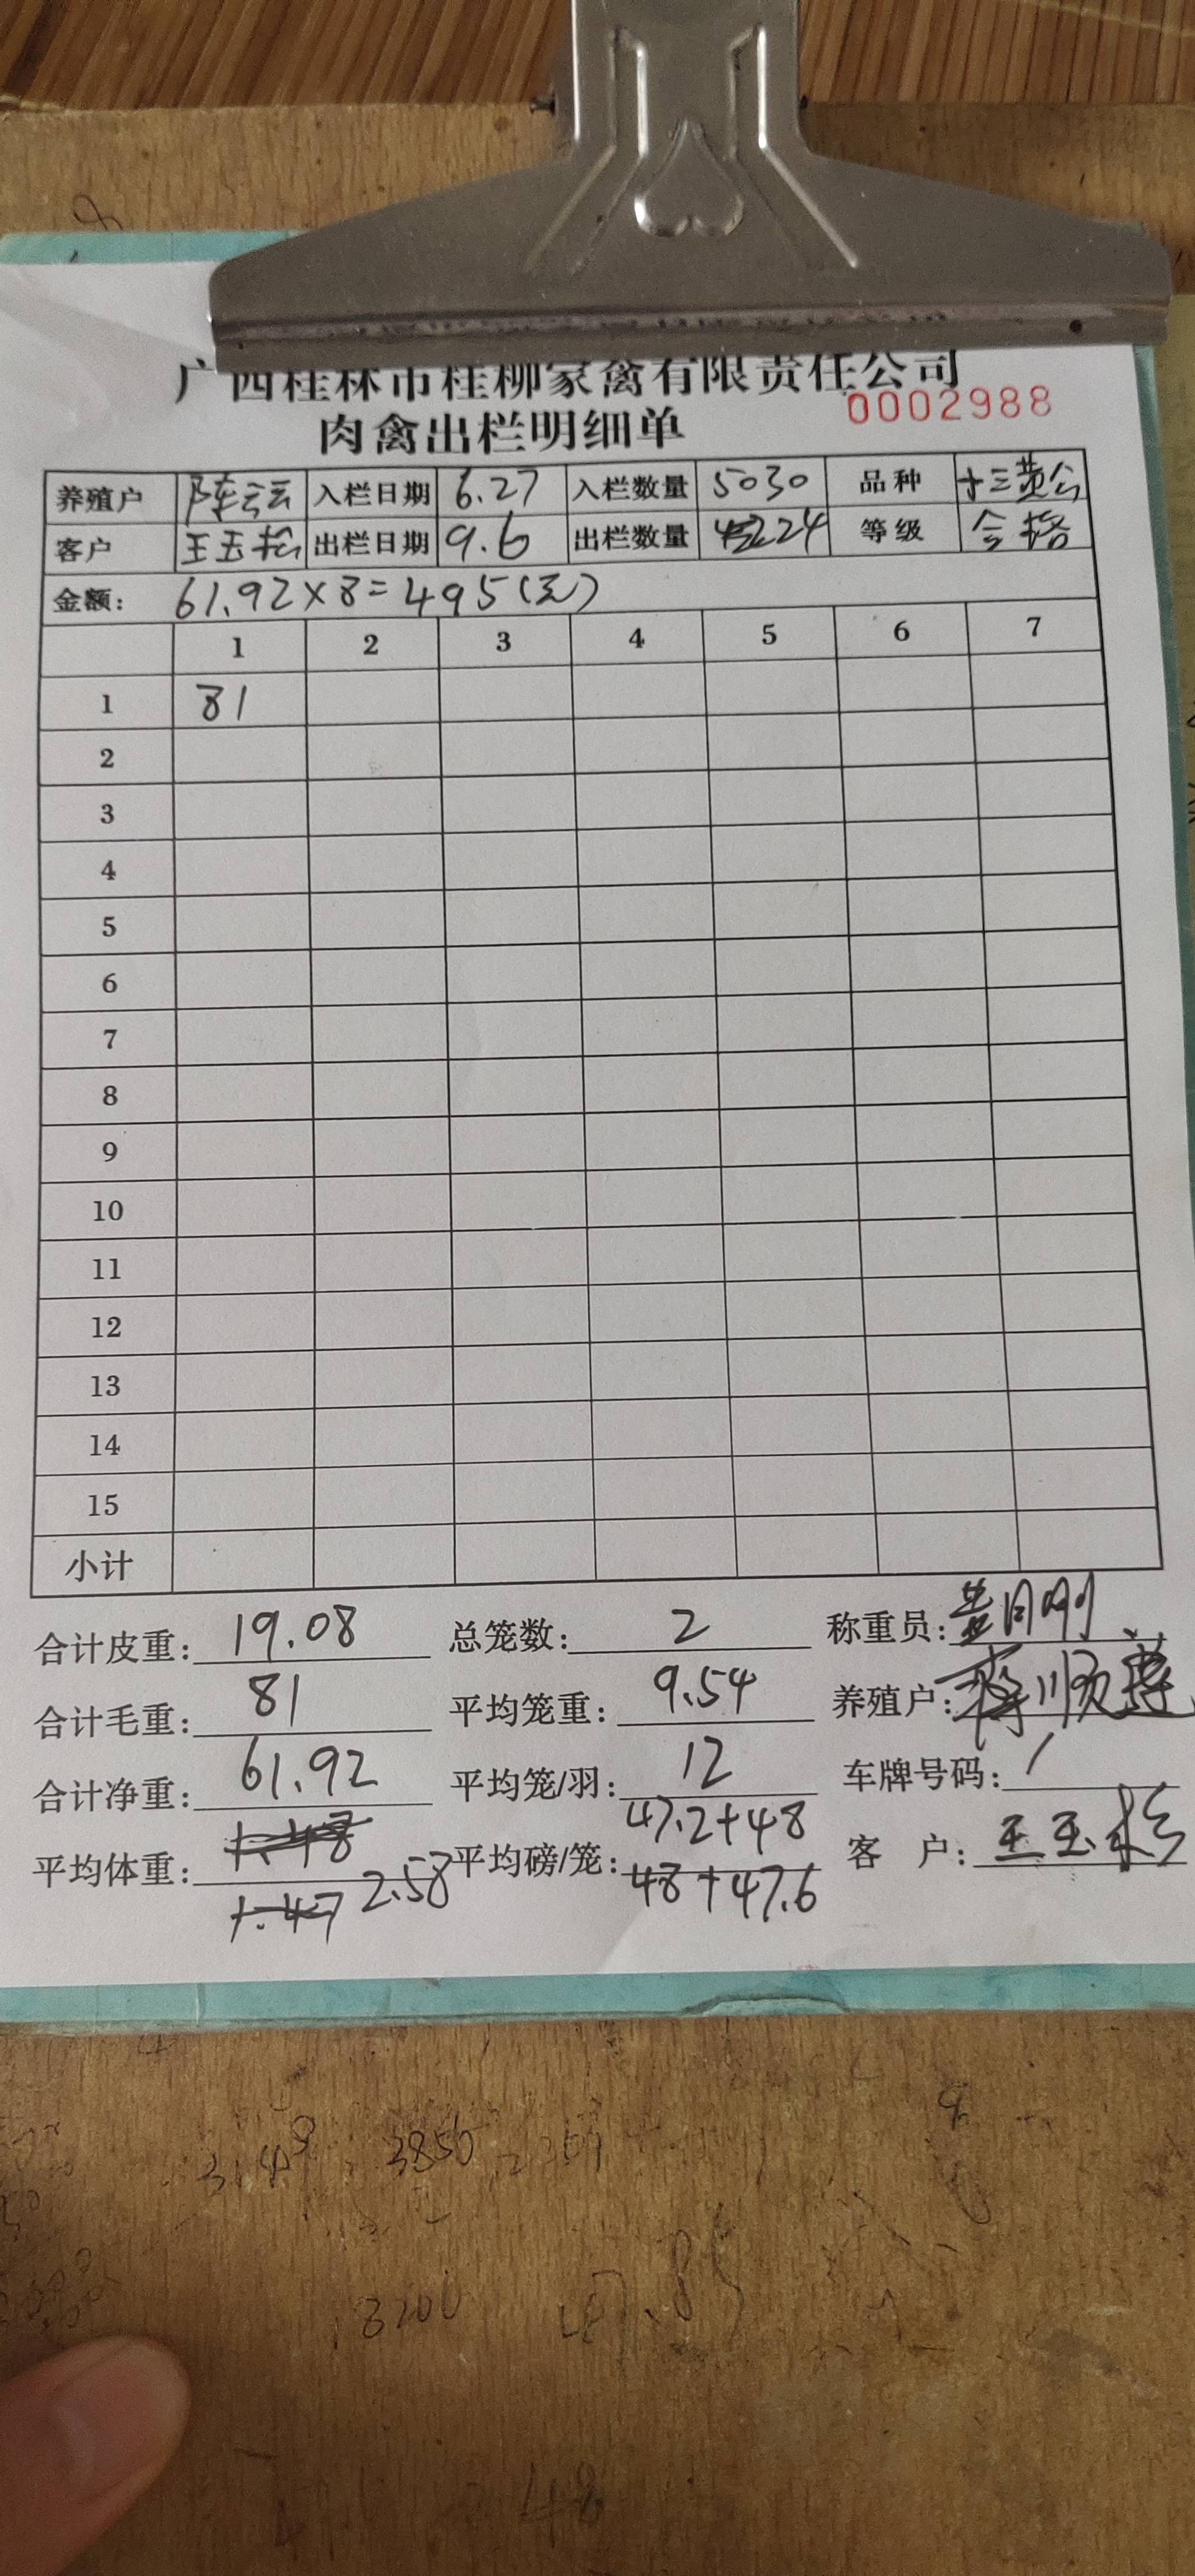 广西桂林市桂柳家禽有限责任公司
0002988
肉禽出栏明细单
养殖户 陈云云 入栏日期 6.27 入栏数量 5030 品种 十三黄公
客户 王玉松 出栏日期 9.6 出栏数量 24 等级 合格
金额: 61.92×8=495(元)
1 2 3 4 5 6 7
1 81
2
3
4
5
6
7
8
9
10
11
12
13
14
15
小计
合计皮重: 19.08 总笼数: 2 称重员:
合计毛重: 81 平均笼重: 9.54 养殖户:
合计净重: 61.92 平均笼/羽: 12 车牌号码: /
平均体重: 1.48 平均磅/笼: 47.2+48 客 户: 王玉松
1.47 2.58 48+47.6
3200
48